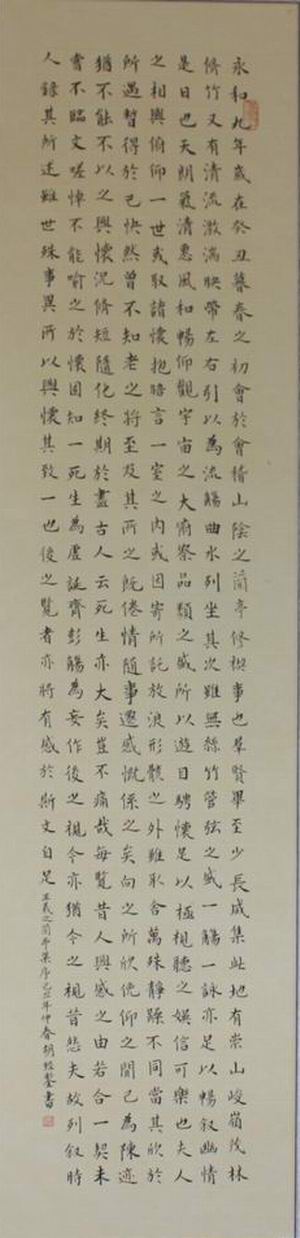 永和九年歲在癸丑暮春之初會於會稽山陰之蘭亭修禊事也羣賢畢至少長咸集此地有崇山峻嶺茂林
脩竹又有清流激湍映帶左右引以為流觴曲水列坐其次雖無絲竹管弦之盛一觴一詠亦足以暢叙幽情
是日也天朗氣清惠風和暢仰觀宇宙之大俯察品類之盛所以遊目騁懷足以極視聽之娛信可樂也夫人
之相與俯仰一世或取諸懷抱晤言一室之內或因寄所託放浪形骸之外雖取舍萬殊靜躁不同當其欣於
所遇暫得於己快然曾不知老之將至及其所之既倦情隨事遷感慨係之矣向之所欣俛仰之間已為陳迹
猶不能不以之興懷況脩短隨化終期於盡古人云死生亦大矣豈不痛哉每覽昔人興感之由若合一契未
嘗不臨文嗟悼不能喻之於懷固知一死生為虛誕齊彭觴為妄作後之視今亦猶今之視昔悲夫故列叙時
人錄其所述雖世殊事異所以興懷其致一也後之覽者亦將有感於斯文自足王羲之蘭亭集序己丑年仲春胡書